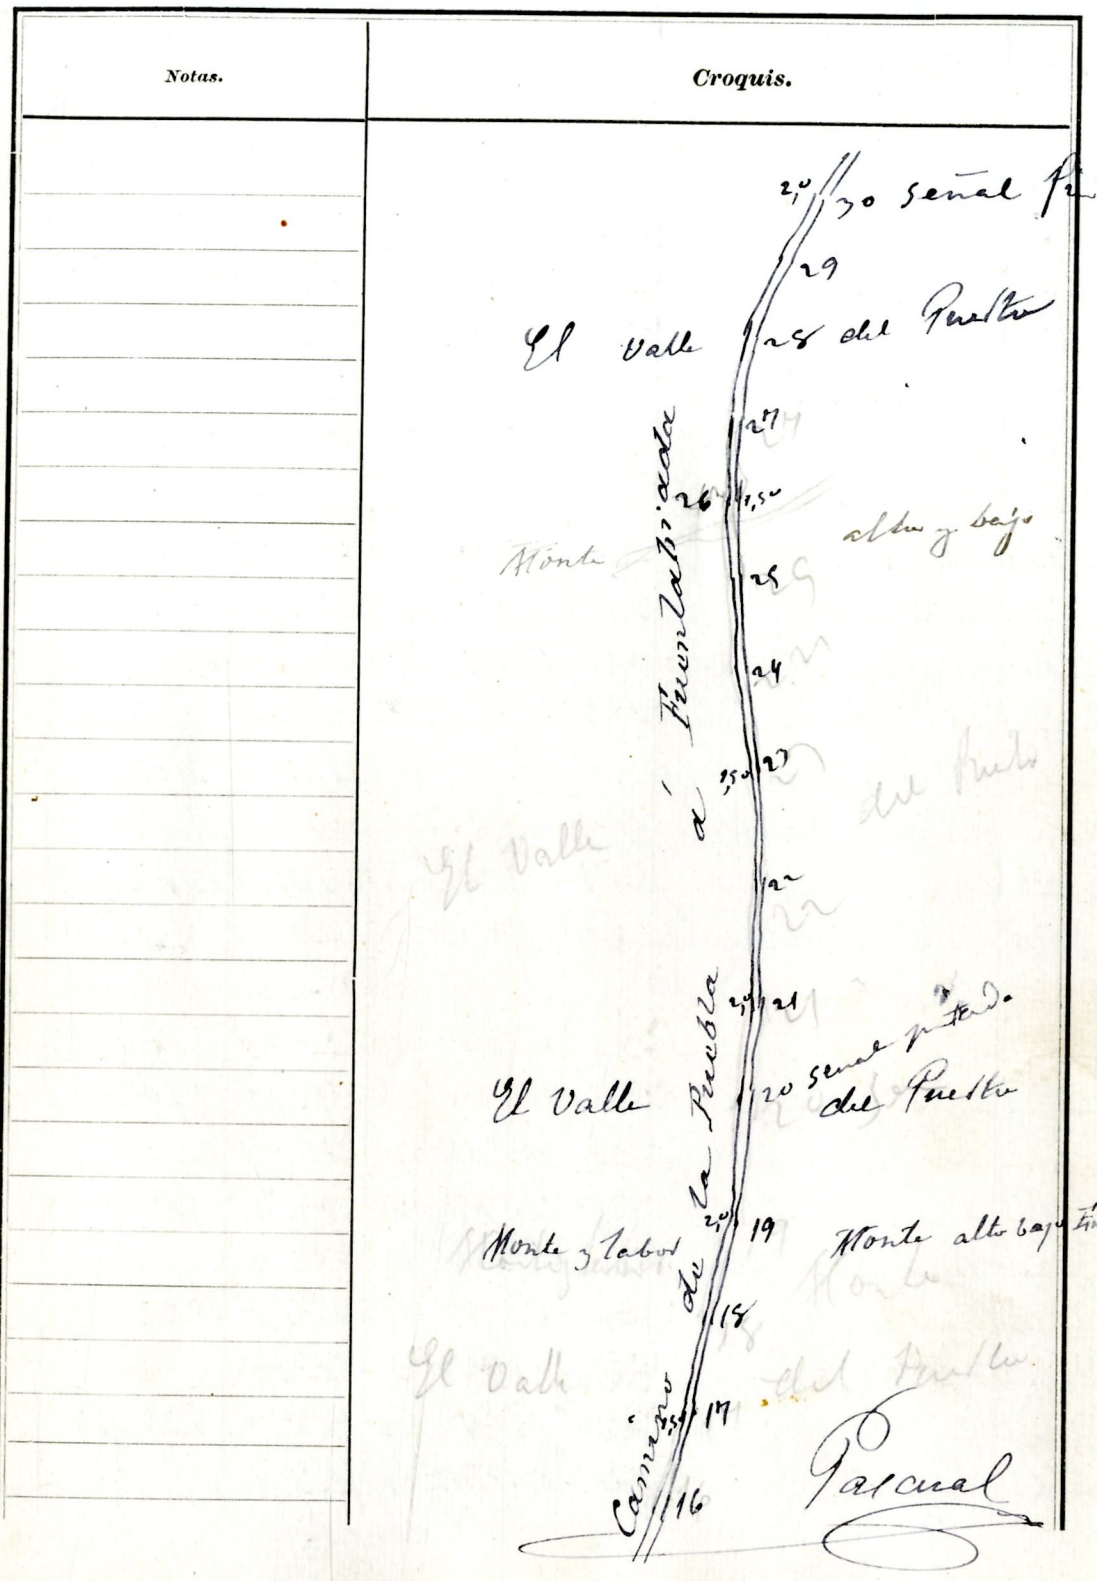 Notas.
Croquis.
2,0 30 señal
29
El Valle 28 del Puerto
27
26 1,50
Monte alto y bajo
25
24
1,50 23
El Valle del Puerto
22
2,0 21
20 señal
El Valle del Puerto
2,0 19
Monte y labor Monte alto bajo
18
El Valle del Puerto
17
16
Camino de la Puebla á Fuenlabrada
Pascual